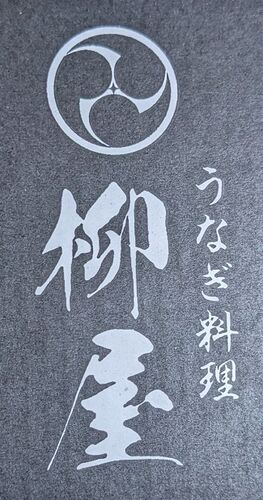 うなぎ料理
柳屋